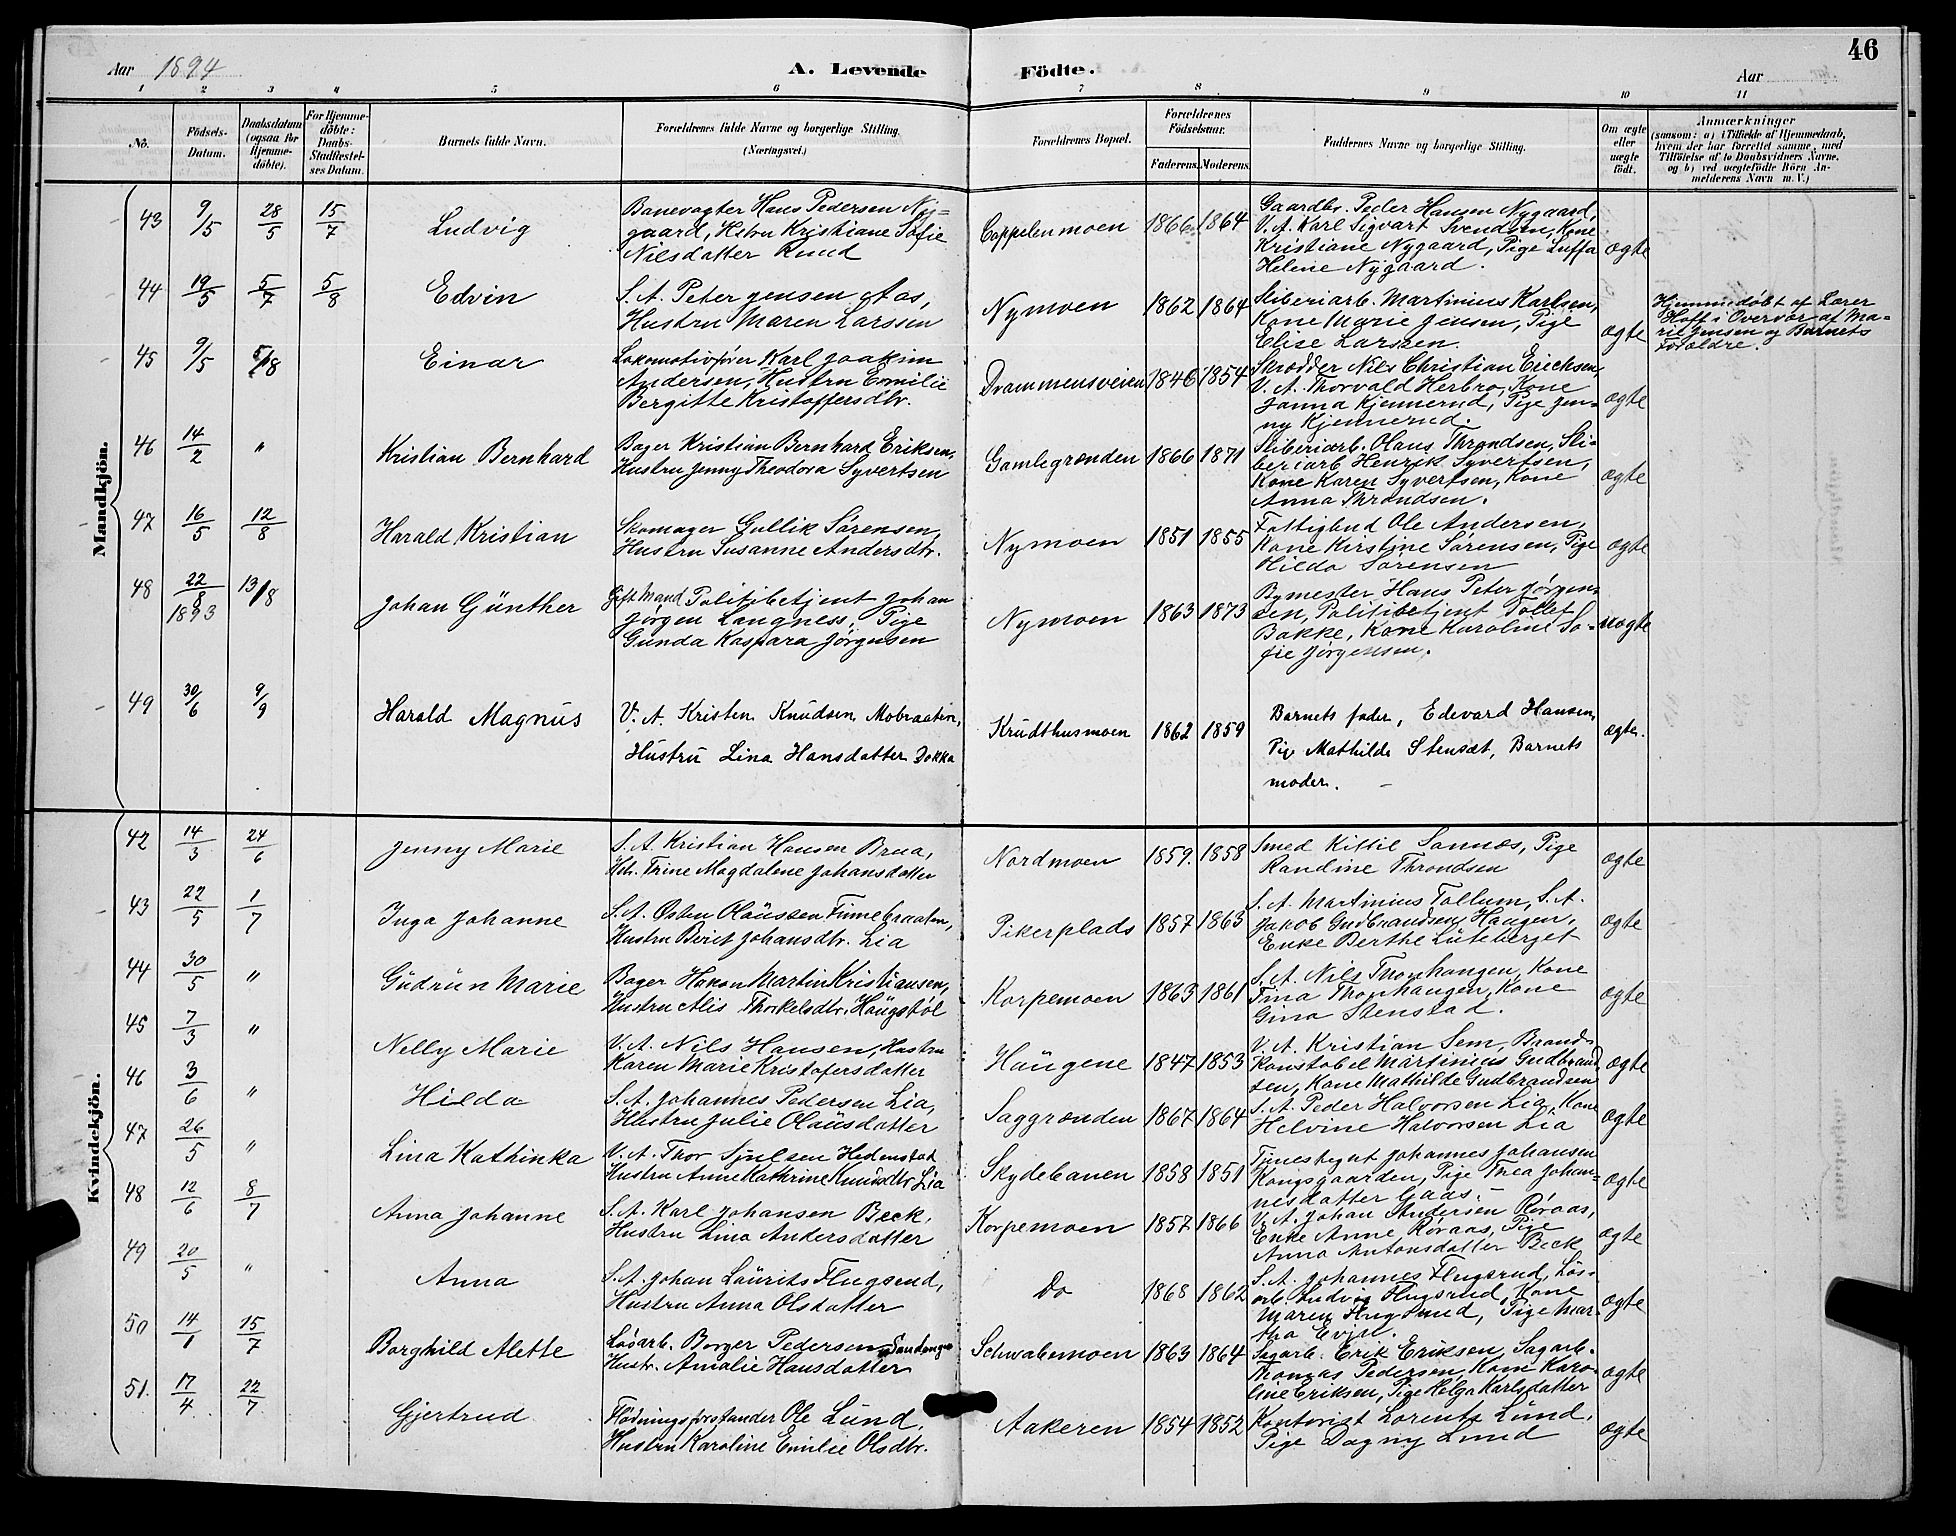 46
Aar 1894 A. Levende Födte. Aar
1 2 3 4 5 6 7 8 9 10 11
No.
Födsels-Datum.
Daabsdatum (ogsaa for Hjemmedöbte).
For Hjemmedöbte: Daabs-Stadfæstelses Datum.
Barnets fulde Navn.
Forældrenes fulde Navne og borgerlige Stilling. (Næringsvei.)
Forældrenes Bopæl.
Forældrenes Födselsaar.
Faderens. Moderens.
Faddernes Navne og borgerlige Stilling.
Om ægte eller uægte födt.
Anmærkninger
(saasom: a) i Tilfælde af Hjemmedaab, hvem der har forrettet samme, med Tilföielse af to Daabsvidners Navne, og b) ved uægtefödte Börn Anmelderens Navn m. V.)
Mandkjön.
43 9/5 28/5 15/7 Ludvig
Banevogter Hans Pedersen Ny=
gaard, Hstru Kristiane Sofie
Nilsdatter Ruud
Cappelenmoen 1866 1864
Gaardbr. Peder Hansen Nygaard,
V. A. Karl Sigvart Svendsen, Kone
Kristiane Nygaard, Pige Luffa
Helene Nygaard.
ægte
44 19/5 5/7 5/8 Edvin
S. A. Peter Jensen Aas,
Hustru Maren Larssen
Nymoen 1862 1864
Sliberiarb. Martinius Karlsen,
Kone Marie Jensen, Pige
Elise Larssen.
ægte
Hjemmedøbt af Lærer
Hoff i Overvær af Ma=
rie Jensen og Barnets
Forældre.
45 9/5 5/8 Einar
Lokomotivfører Karl Joakim
Andersen, Hustru Emilie
Bergitte Kristoffersdtr.
Drammensveien 1846 1854
Skrædder Nils Christian Erichsen,
V. A. Thorvald Herbro, Kone
Janna Kjennerud, Pige Jen=
ny Kjennerud.
ægte
46 14/2 " Kristian Bernhard
Bager Kristian Bernhard Eriksen,
Hustru Jenny Theodora Syvertsen
Gamlegrænden 1866 1871
Sliberiarb. Olaus Throndsen, Sli=
beriarb Henrik Syvertsen,
Kone Karen Syvertsen, Kone
Anna Throndsen.
ægte
47 16/5 12/8 Harald Kristian
Skomager Gullik Sørensen,
Hustru Susanne Andersdtr.
Nymoen 1851 1855
Fattigbud Ole Andersen,
Kone Kirstine Sørensen, Pige
Hilda Sørensen
ægte
48 22/8 1893 13/8 Johan Günther
Gift Mand Politibetjent Johan
Jørgen Langness, Pige
Gunda Kaspara Jørgensen
Nymoen 1863 1873
Bymester Hans Peter Jørgen=
sen, Politibetjent Tollef
Bakke, Kone Karoline So=
fie Jørgensen.
uægte
49 30/6 9/9 Harald Magnus
V. A. Kristen Knudsen Mobraaten,
Hustru Lina Hansdatter Dokka
Krudthusmoen 1862 1859
Barnets fader, Edevard Hansen,
Pige Mathilde Stensæt, Barnets
moder. –
ægte.
Kvindekjön.
42 14/3 24/6 Jenny Marie
S. A. Kristian Hansen Brua,
Hstr. Trine Magdalene Johansdatter
Nordmoen 1859. 1858
Smed Kittil Sannæs, Pige
Randine Throndsen
ægte
43 22/5 1/7 Inga Johanne
S. A. Østen Olaussen Finnebraaten,
Hustru Berit Johansdtr. Lia
Pikerplads 1857 1863
S. A. Martinius Tollum, S. A.
Jakob Gudbrandsen Haugen,
Enke Berthe Luteberget
ægte
44 30/5 " Gudrun Marie
Bager Hakon Martin Kristiansen,
Hustru Alis Thorkelsdtr. Haugstøl
Korpemoen 1863 1861
S. A. Nils Thonhaugen, Kone
Tina Thonhaugen, Kone
Gina Stenstad.
ægte
45 7/3 " Nelly Marie
V. A. Nils Hansen, Hustru
Karen Marie Kristofersdatter
Haugene 1847 1853
V. A. Kristian Sem, Brand=
konstabel Martinius Gudbrand
sen, Kone Mathilde Gudbrandsen
ægte
46 3/6 " Hilda
S. A. Johannes Pedersen Lia,
Hustru Julie Olausdatter
Saggrænden 1867 1864
S. A. Peder Halvorsen Lia, Kone
Helvine Halvorsen Lia
ægte
47 26/5 " Lina Kathinka
V. A. Thor Sjulsen Hedenstad
Hustru Anne Kathrine Knudsdtr. Lia
Skydebanen 1858 1851
Tjenestegut Johannes Johansen
Kongsgaarden, Pige Thea Johan=
nesdatter Gaas.
ægte
48 12/6 8/7 Anna Johanne
S. A. Karl Johansen Beck,
Hustru Lina Andersdatter
Korpemoen 1857 1866
V. A. Johan Andersen Røraas,
Enke Anne Røraas, Pige
Anna Antonsdatter Beck
ægte
49 20/5 " Anna
S. A. Johan Laurits Flugsrud,
Hustru Anna Olsdatter
Do 1868 1862
S. A. Johannes Flugsrud, Løs=
arb. Ludvig Flugsrud, Kone
Maren Flugsrud, Pige Mar=
tha
ægte
50 14/1 15/7 Borghild Alette
Løsarb. Borger Pedersen Sandenga
Hustr. Amalie Hansdatter
Schwabemoen 1863 1864
Sagarb. Erik Eriksen, Sagarb.
Thomas Pedersen, Kone Karo=
line Eriksen, Pige Helga Karlsdatter
ægte
51. 17/4 22/7 Gjertrud
Flødningsforstander Ole Lund,
Hustru Karoline Emilie Olsdtr.
Aakeren 1854 1852
Kontorist Lorents Lund,
Pige Dagny Lund
ægte